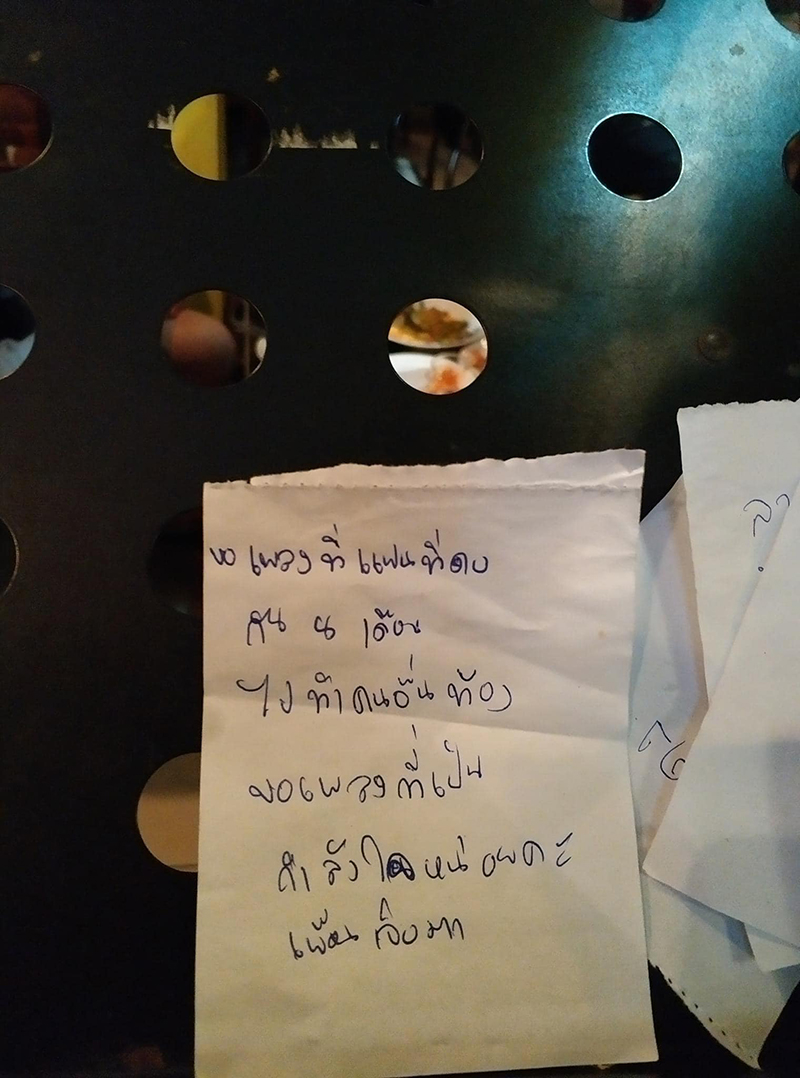 ขอเพลงที่แฟนที่คบ
กัน 8 เดือน
ไปทำคนอื่นท้อง
ขอเพลงที่เป็น
กำลังใจหน่อยคะ
เพื่อนเจ็บมาก